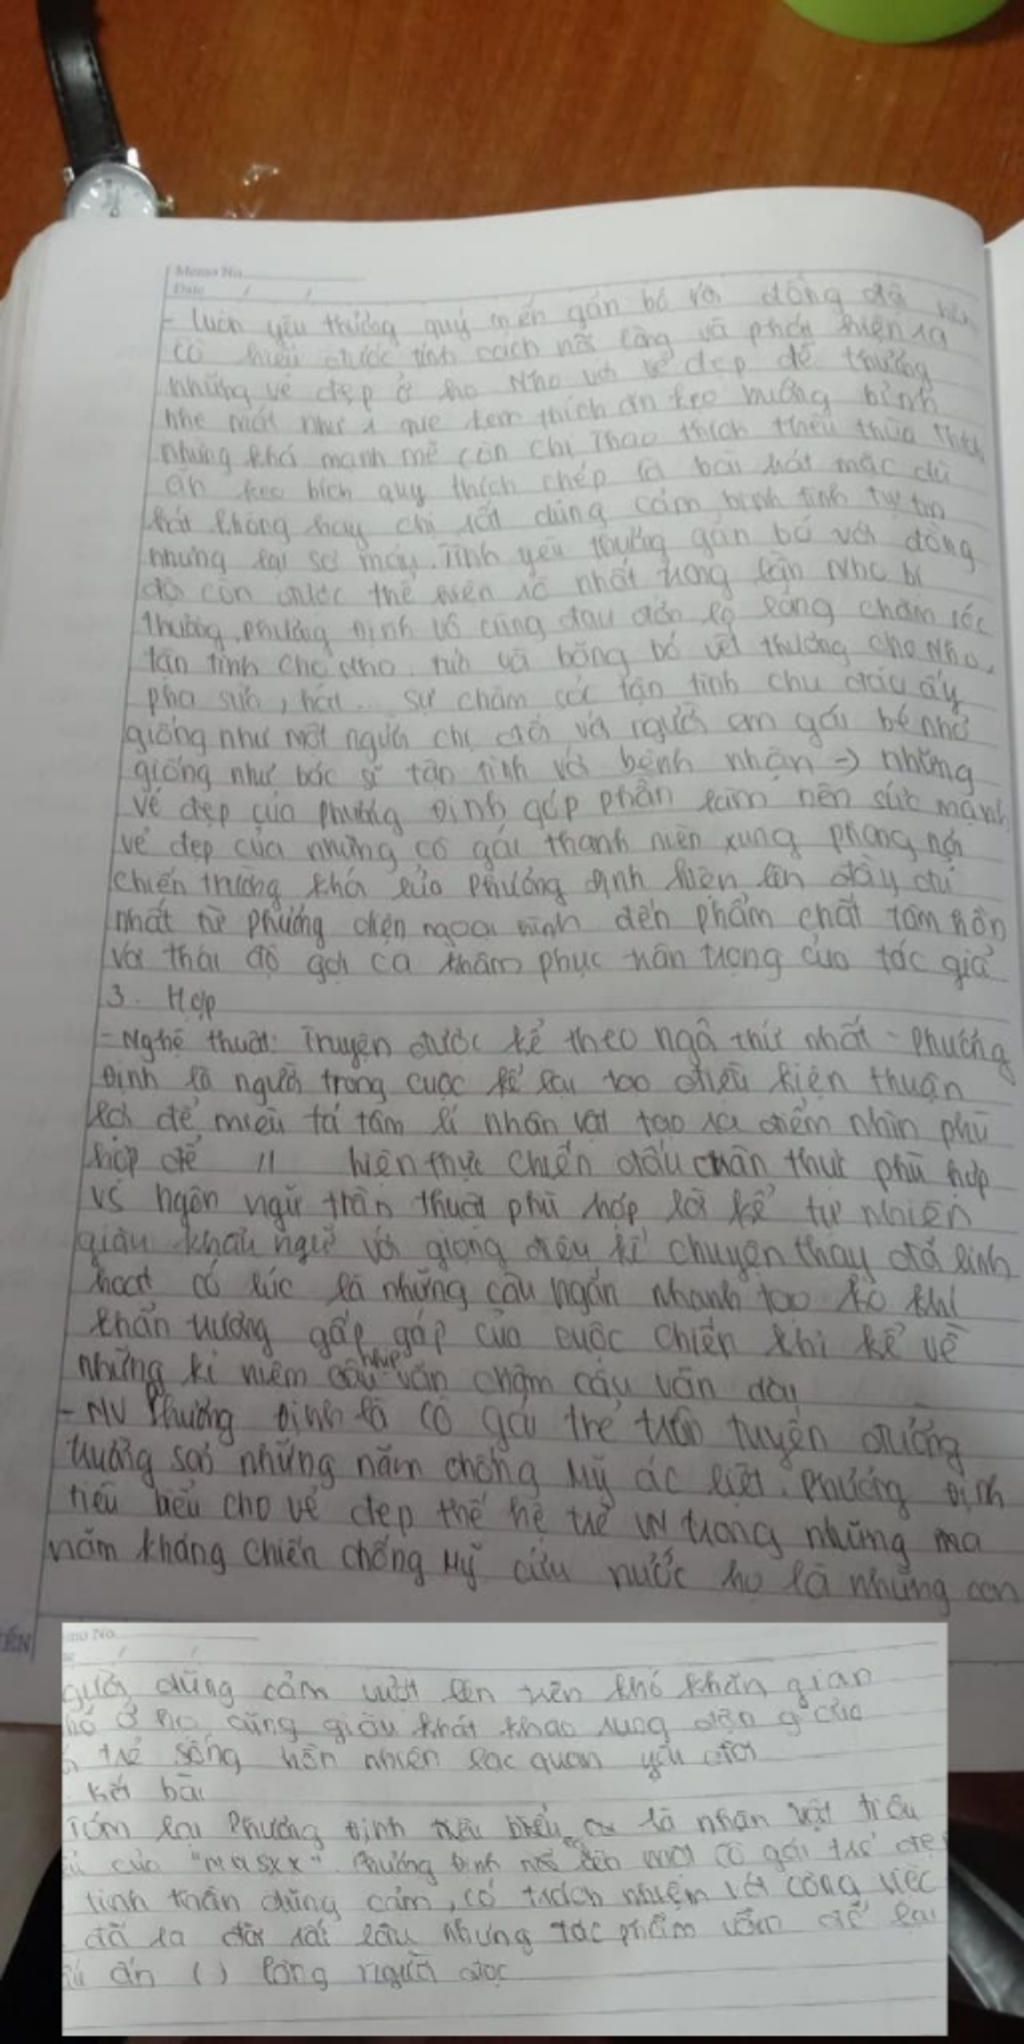 Memo No.
Date / /
- Luôn yêu thương quý mến gắn bó với đồng đội nên
cô hiểu được tính cách nổi lòng và phát hiện ra
những vẻ đẹp ở họ Nho với vẻ đẹp dễ thương
nhẹ mát như 1 que kem thích ăn kẹo bướng bỉnh
nhưng khá mạnh mẽ còn chị Thao thích thêu thùa thích
ăn kẹo bích quy thích chép là bài hát mặc dù
hát không hay chị rất dũng cảm bình tĩnh tự tin
nhưng lại sợ máy. Tình yêu thương gắn bó với đồng
đội còn được thể hiện rõ nhất trong lần Nho bị
thương, Phương Định vô cùng đau đớn lo lắng chăm sóc
tận tình cho Nho. rửa và băng bó vết thương cho Nho,
pha sữa, hát... sự chăm sóc tận tình chu đáo ấy
giống như một người chị đối với người em gái bé nhỏ
giống như bác sĩ tận tình với bệnh nhân → những
vẻ đẹp của Phương Định góp phần làm nên sức mạnh
vẻ đẹp của những cô gái thanh niên xung phong nơi
chiến trường khói lửa Phương định hiện lên đầy đủ
nhất từ phương diện ngoại hình đến phẩm chất tâm hồn
với thái độ gợi ca thâm phục trân trọng của tác giả
3. Hợp
- Nghệ thuật: Truyện được kể theo ngô thứ nhất - Phương
Định là người trong cuộc kể lại tạo điều kiện thuận
lợi để miêu tả tâm lí nhân vật tạo ra điểm nhìn phù
hợp để 11 hiện thực chiến đấu chân thực phù hợp
vs ngôn ngữ trần thuật phù hợp lời kể tự nhiên
giàu khẩu ngữ với giọng điệu kể chuyện thay đổi linh
hoạt có lúc là những câu ngắn nhanh tạo ko khí
khẩn trương gấp gáp của cuộc chiến khi kể về
những kỉ niệm câu nhịp văn chậm câu văn dài
- NV Phương Định là cô gái trẻ trên tuyến đường
trường sơn những năm chống Mỹ ác liệt. Phương Định
tiêu biểu cho vẻ đẹp thế hệ trẻ VN trong những ma
năm kháng chiến chống Mỹ cứu nước họ là những con
gười dũng cảm vượt lên trên khó khăn gian
hổ ở họ cũng giàu khát khao rung động của
trẻ sống hồn nhiên lạc quan yêu đời
Kết bài
Tóm lại Phương Định tiêu biểu là nhân vật tiêu
của "NNSXX". Phương Định nói đến một cô gái trẻ đẹ
tinh thần dũng cảm, có trách nhiệm với công việc
đã ra đời rất lâu nhưng tác phẩm vẫn để lại
ấn ( ) lòng người đọc